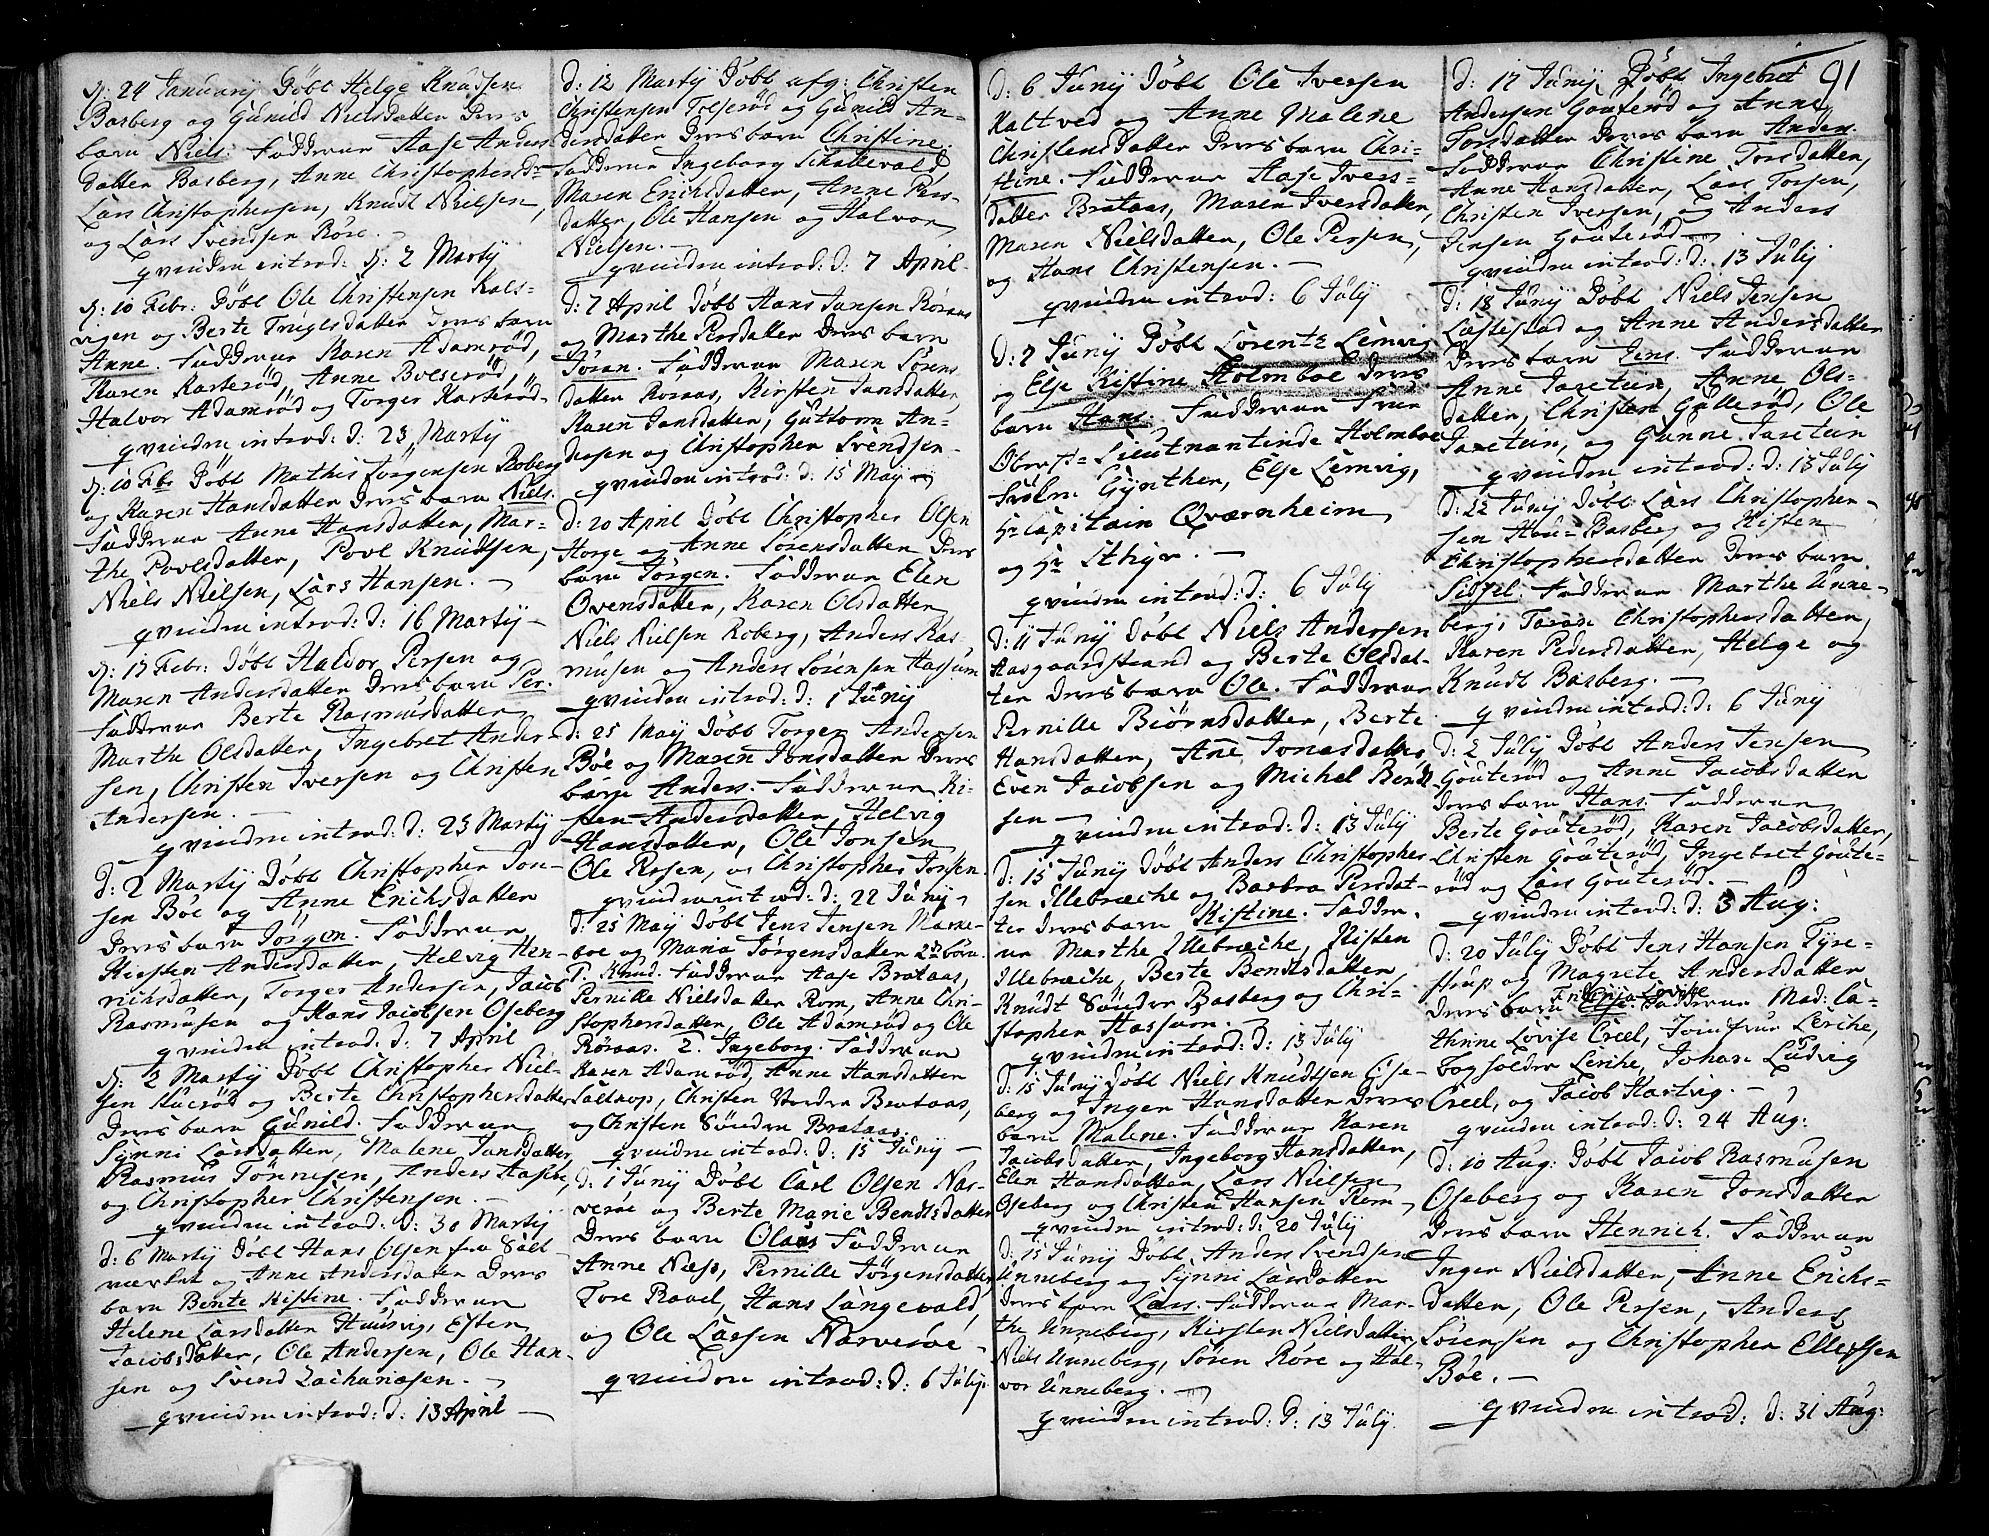 d: 24 Januarij Döbt Helge Knudsen
Basberg og Gunild Nielsdatter Deres
barn Niels. Fadderne Aase Anders
datter Basberg, Anne Christophersd=
Lars Christophersen, Knudt Nielsen,
og Lars Svendsen Röre.
qvinden introd: d: 2 Martij
d: 10 Febr: Döbt Ole Christensen Kals-
vigen og Berte Truglsdatter deres barn
Anne. Fadderne Karen Adamröd,
Karen Karteröd, Anne Bolseröd,
Halvor Adamröd og Torger Karteröd
qvinden introd: d: 23 Martij
d: 10 Febr Döbt Mathis Jörgensen Roberg
og Karen Hansdatter deres barn Niels.
Fadderne Anne Hansdatter, Mar-
the Povelsdatter, Povl Knudtsen,
Niels Nielsen, Lars Hansen.
qvinden introd: d: 16 Martij
d: 17 Febr: Döbt Haldor Persen og
Maren Andersdatter Deres barn Per.
Fadderne Berte Rasmusdatter
Marthe Olsdatter, Ingebret Ander-
sen, Christen Iversen og Christen
Andersen.
qvinden introd: d: 23 Martij
d: 2 Martij Döbt Christopher Jon-
sen Böe og Anne Erichsdatter
Deres barn Jörgen. Fadderne
Kirsten Andersdatter, Helvig Hen-
richsdatter, Torger Andersen, Jacob
Rasmusen og Hans Jacobsen Oseberg
qvinden introd: d: 7 April
d: 2 Martij Döbt Christopher Niel-
sen Hueröd og Berte Christophersdatter
Deres barn Gunild. Fadderne
Synni Larsdatter, Malene Jansdatter,
Rasmus Tönnesen, Anders
og Christopher Christensen.
qvinden introd: d: 30 Martij
d: 6 Martij Döbt Hans Olsen fra Salt-
værket og Anne Andersdatter Deres
barn Bente Kistine. Fadderne
Helene Larsdatter Huusvig, Ester
Jacobsdatter, Ole Andersen, Ole Han-
sen og Svend Zachariasen.
qvinden introd: d: 13 April
d: 12 Martij Döbt afg: Christen
Christensen Tolseröd og Gunild An-
dersdatter Deres barn Christine.
Fadderne Ingeborg Schallevald
Maren Erichsdatter, Anne
datter, Ole Hansen og Halvor
Nielsen.
qvinden introd: d: 7 April
d: 7 April Döbt Hans Jansen Röraas
og Marthe Persdatter Deres barn
Jöran. Fadderne Maren Sörens
datter Röraas, Kirsten Jansdatter,
Karen Jansdatter, Guttorm An-
dersen og Christopher Svendsen
qvinden introd: d: 15 Maij
d: 20 April Döbt Christopher Olsen
Horge og Anne Sörensdatter Deres
barn Jörgen. Fadderne Elen
Ovensdatter, Karen Olsdatter
Niels Nielsen Roberg, Anders Ras-
musen og Anders Sörensen Hassum
qvinden introd: d: 1 Junij
d: 25 Maij Döbt Torger Andersen
Böe og Maren Jonsdatter Deres
barn Anders. Fadderne Ki-
sten Andersdatter, Helvig
Hansdatter, Ole Jonsen
Ole Persen, og Christopher Jonsen
qvinden introd: d: 22 Junij
d: 25 Maij Döbt Jens Jensen Narve-
boe og Maria Jörgensdatter 2de börn.
1. Knud. Fadderne Aase Brataas,
Pernille Nielsdatter Rom, Anne Chri-
stophersdatter, Ole Adamröd og Ole
Röraas. 2. Ingeborg. Fadderne
Karen Adamröd, Anne Hansdatter
Saltkop, Christen Nordre Brataas,
og Christen Söndre Brataas.
qvinden introd: d: 15 Junij
d: 1 Junij Döbt Carl Olsen Nar-
veröe og Berte Marie Bendtsdatter
Deres barn Olaus Fadderne
Anne Næss, Pernille Jörgensdatter,
Tore Ravel, Hans Langevald,
og Ole Larsen Narveröe
qvinden introd: d: 6 Julij.
91
d: 6 Junij Döbt Ole Iversen
Kaltved og Anne Malene
Christensdatter Deres barn Chri-
stine. Fadderne Aase Ivers-
datter Brataas, Maren Iversdatter,
Maren Nielsdatter, Ole Persen,
og Hans Christensen.
qvinden introd: 6 Julij
d: 7 Junij Döbt Lorentz Lemvig
og Else Kistine Holmboe Deres
barn Hans. Fadderne Frue
Oberst= Lieutnantinde Holmboe
Frölm Gynther, Else Lemvig,
Hr Capitain Qværnheim
og Hr Sthyr.
qvinden introd: d: 6 Julij
d: 11 Junij Döbt Niels Andersen
Aasgaardstrand og Berte Olsdat-
ter Deres barn Ole. Fadderne
Pernille Biörnsdatter, Berte
Hansdatter, Ane Jonasdatter,
Even Jacobsen og Michel Bendt
sen
qvinden introd: d: 13 Julij
d: 15 Junij Döbt Anders Christopher
sen Illebræche og Barbra Persdat-
ter Deres barn Kistine. Fadder-
ne Marthe Illebræche, Kisten
Illebræche, Berte Bendtsdatter,
Knudt Söndre Basberg og Chri-
stopher Hassum.
qvinden introd: d: 13 Julij
d: 15 Junij Döbt Niels Knudtsen Ose-
berg og Inger Hansdatter Deres
barn Malene. Fadderne Karen
Jacobsdatter, Ingeborg Hansdatter,
Elen Hansdatter, Lars Nielsen
Oseberg og Christen Hansen Rom
qvinden introd: d: 20 Julij
d: 15 Junij Döbt Anders Svendsen
Unneberg og Synni Larsdatter
Deres barn Lars. Fadderne Mar-
the Unneberg, Kirsten Nielsdatter,
Niels Unneberg, Sören Röre og Hal-
vor Unneberg.
qvinden introd: d: 13 Julij
d: 17 Junij Döbt Ingebret
Andersen Gouteröd og Anne
Torsdatter Deres barn Anders.
Fadderne Christine Torsdatter,
Anne Hansdatter, Lars Torsen,
Christen Iversen, og Anders
Jensen Gouteröd
qvinden introd: d: 13 Julij
d: 18 Junij Döbt Niels Jensen
Lastestad og Anne Andersdatter
Deres barn Jens. Fadderne
Anne Jareteien, Anne Ols-
datter, Christen Gulleröd, Ole
Jareteien, og Gunne Jareteien
qvinden introd: d: 13 Julij
d: 22 Junij Döbt Lars Christopher-
sen Hou-Basberg og Kisten
Christophersdatter Deres barn
Sidsel. Fadderne Marthe Unne-
berg, Taran Christophersdatter,
Karen Pedersdatter, Helge og
Knudt Basberg.
qvinden introd: d: 6 Junij
d: 2 Julij Döbt Anders Jensen
Gouteröd og Anne Jacobsdatter
Deres barn Hans. Fadderne
Berte Gouteröd, Karen Jacobsdatter,
Christen Gouteröd, Ingebret Goute-
röd og Lars Gouteröd.
qvinden introd: d: 3 Aug:
d: 20 Julij Döbt Jens Hansen Tyre-
strup og Magrete Andersdatter
Lovise
Deres barn Else. Fadderne Mad: Ca-
thrine Lovise Creel, Joinfrue Lerche,
Bogholder Lerche, Johan Ludvig
Creel, og Jacob Hartvig.
qvinden introd: d: 24 Aug:
d: 10 Aug: Döbt Jacob Rasmusen
Oseberg og Karen Jonsdatter
Deres barn Henrich. Fadderne
Inger Nielsdatter, Anne Erichs=
datter, Ole Persen, Anders
Sörensen og Christopher Ellefsen
Böe.
qvinden introd: d: 31 Aug: